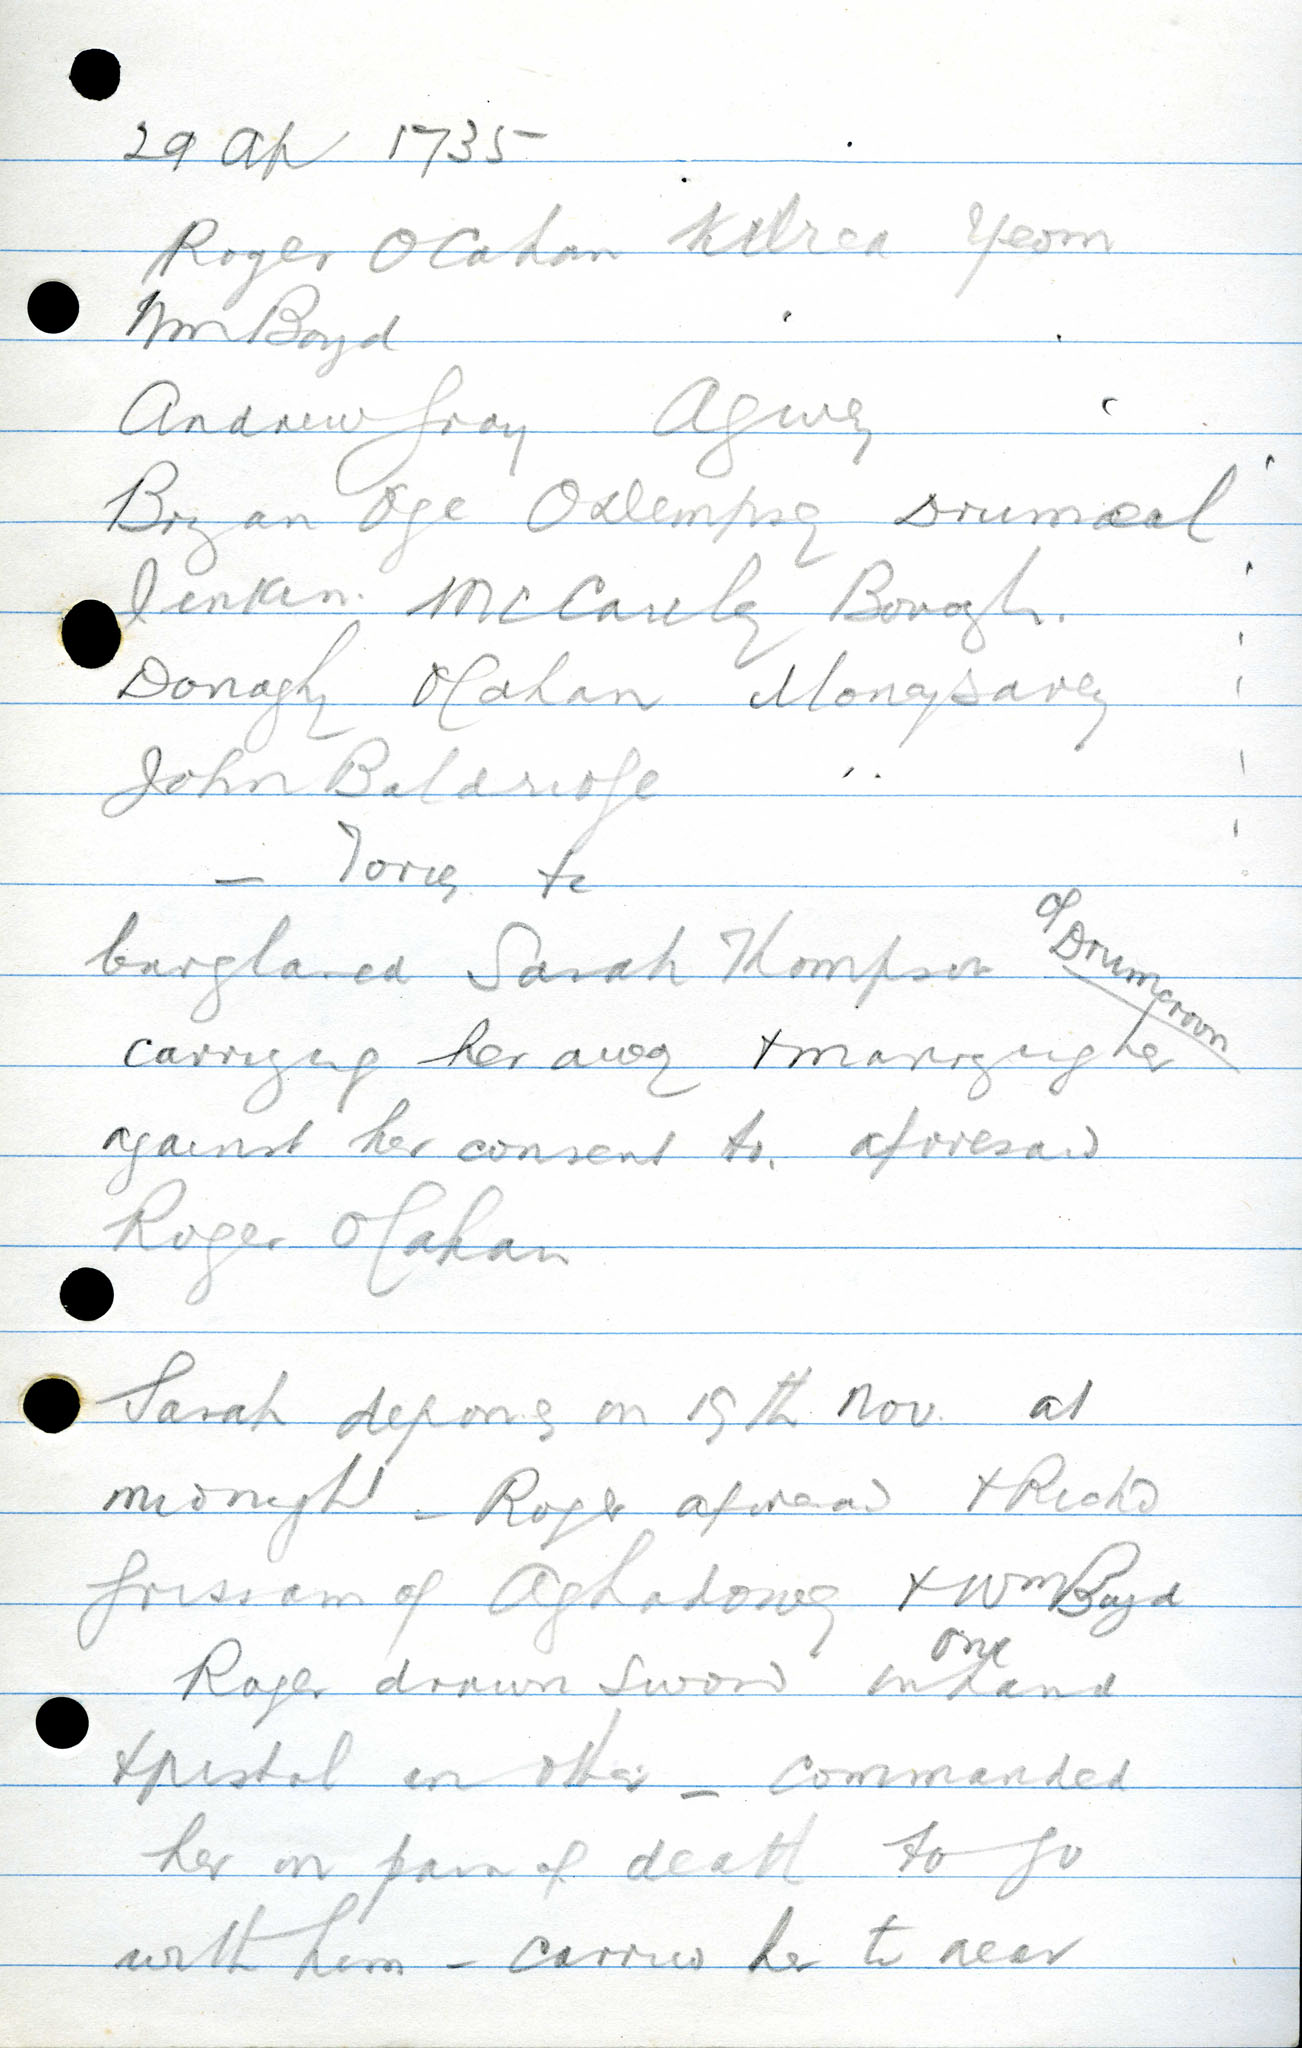 29 Ap 1735
Roger OCahan Kilrea Yeom
Wm Boyd
Andrew Gray Agivey
Bryan Oge ODempsey Drumeal
Jenkin McCauley Boveagh.
Donaghy OCahan Moneysavey
John Baldridge "
— Tories &c
burglared Sarah Thompson of Drumcroon
carrying her away & marrying her
against her consent to. aforesaid
Roger OCahan
Sarah depones on 19th Nov. at
midnight — Roger aforesaid & Richd
Grissam of Aghadowey & Wm Boyd
Roger drawn sword in one hand
& pistol in other — commanded
her on pain of death to go
with him — carried her to near